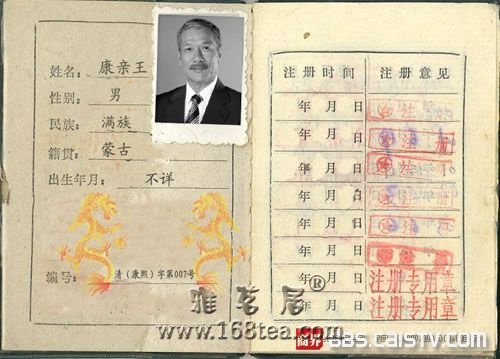 姓名: 康亲王
性别: 男
民族: 满族
籍贯: 蒙古
出生年月: 不详
编号: 清(康熙)字第007号
注册时间 注册意见
年 月 日 注册
年 月 日 注册
年 月 日 注册
年 月 日 注册
年 月 日 注册
年 月 日
年 月 日 注册专用章
年 月 日 注册专用章
雅茗居®
www.168tea.com
商界
bbs.caistv.com